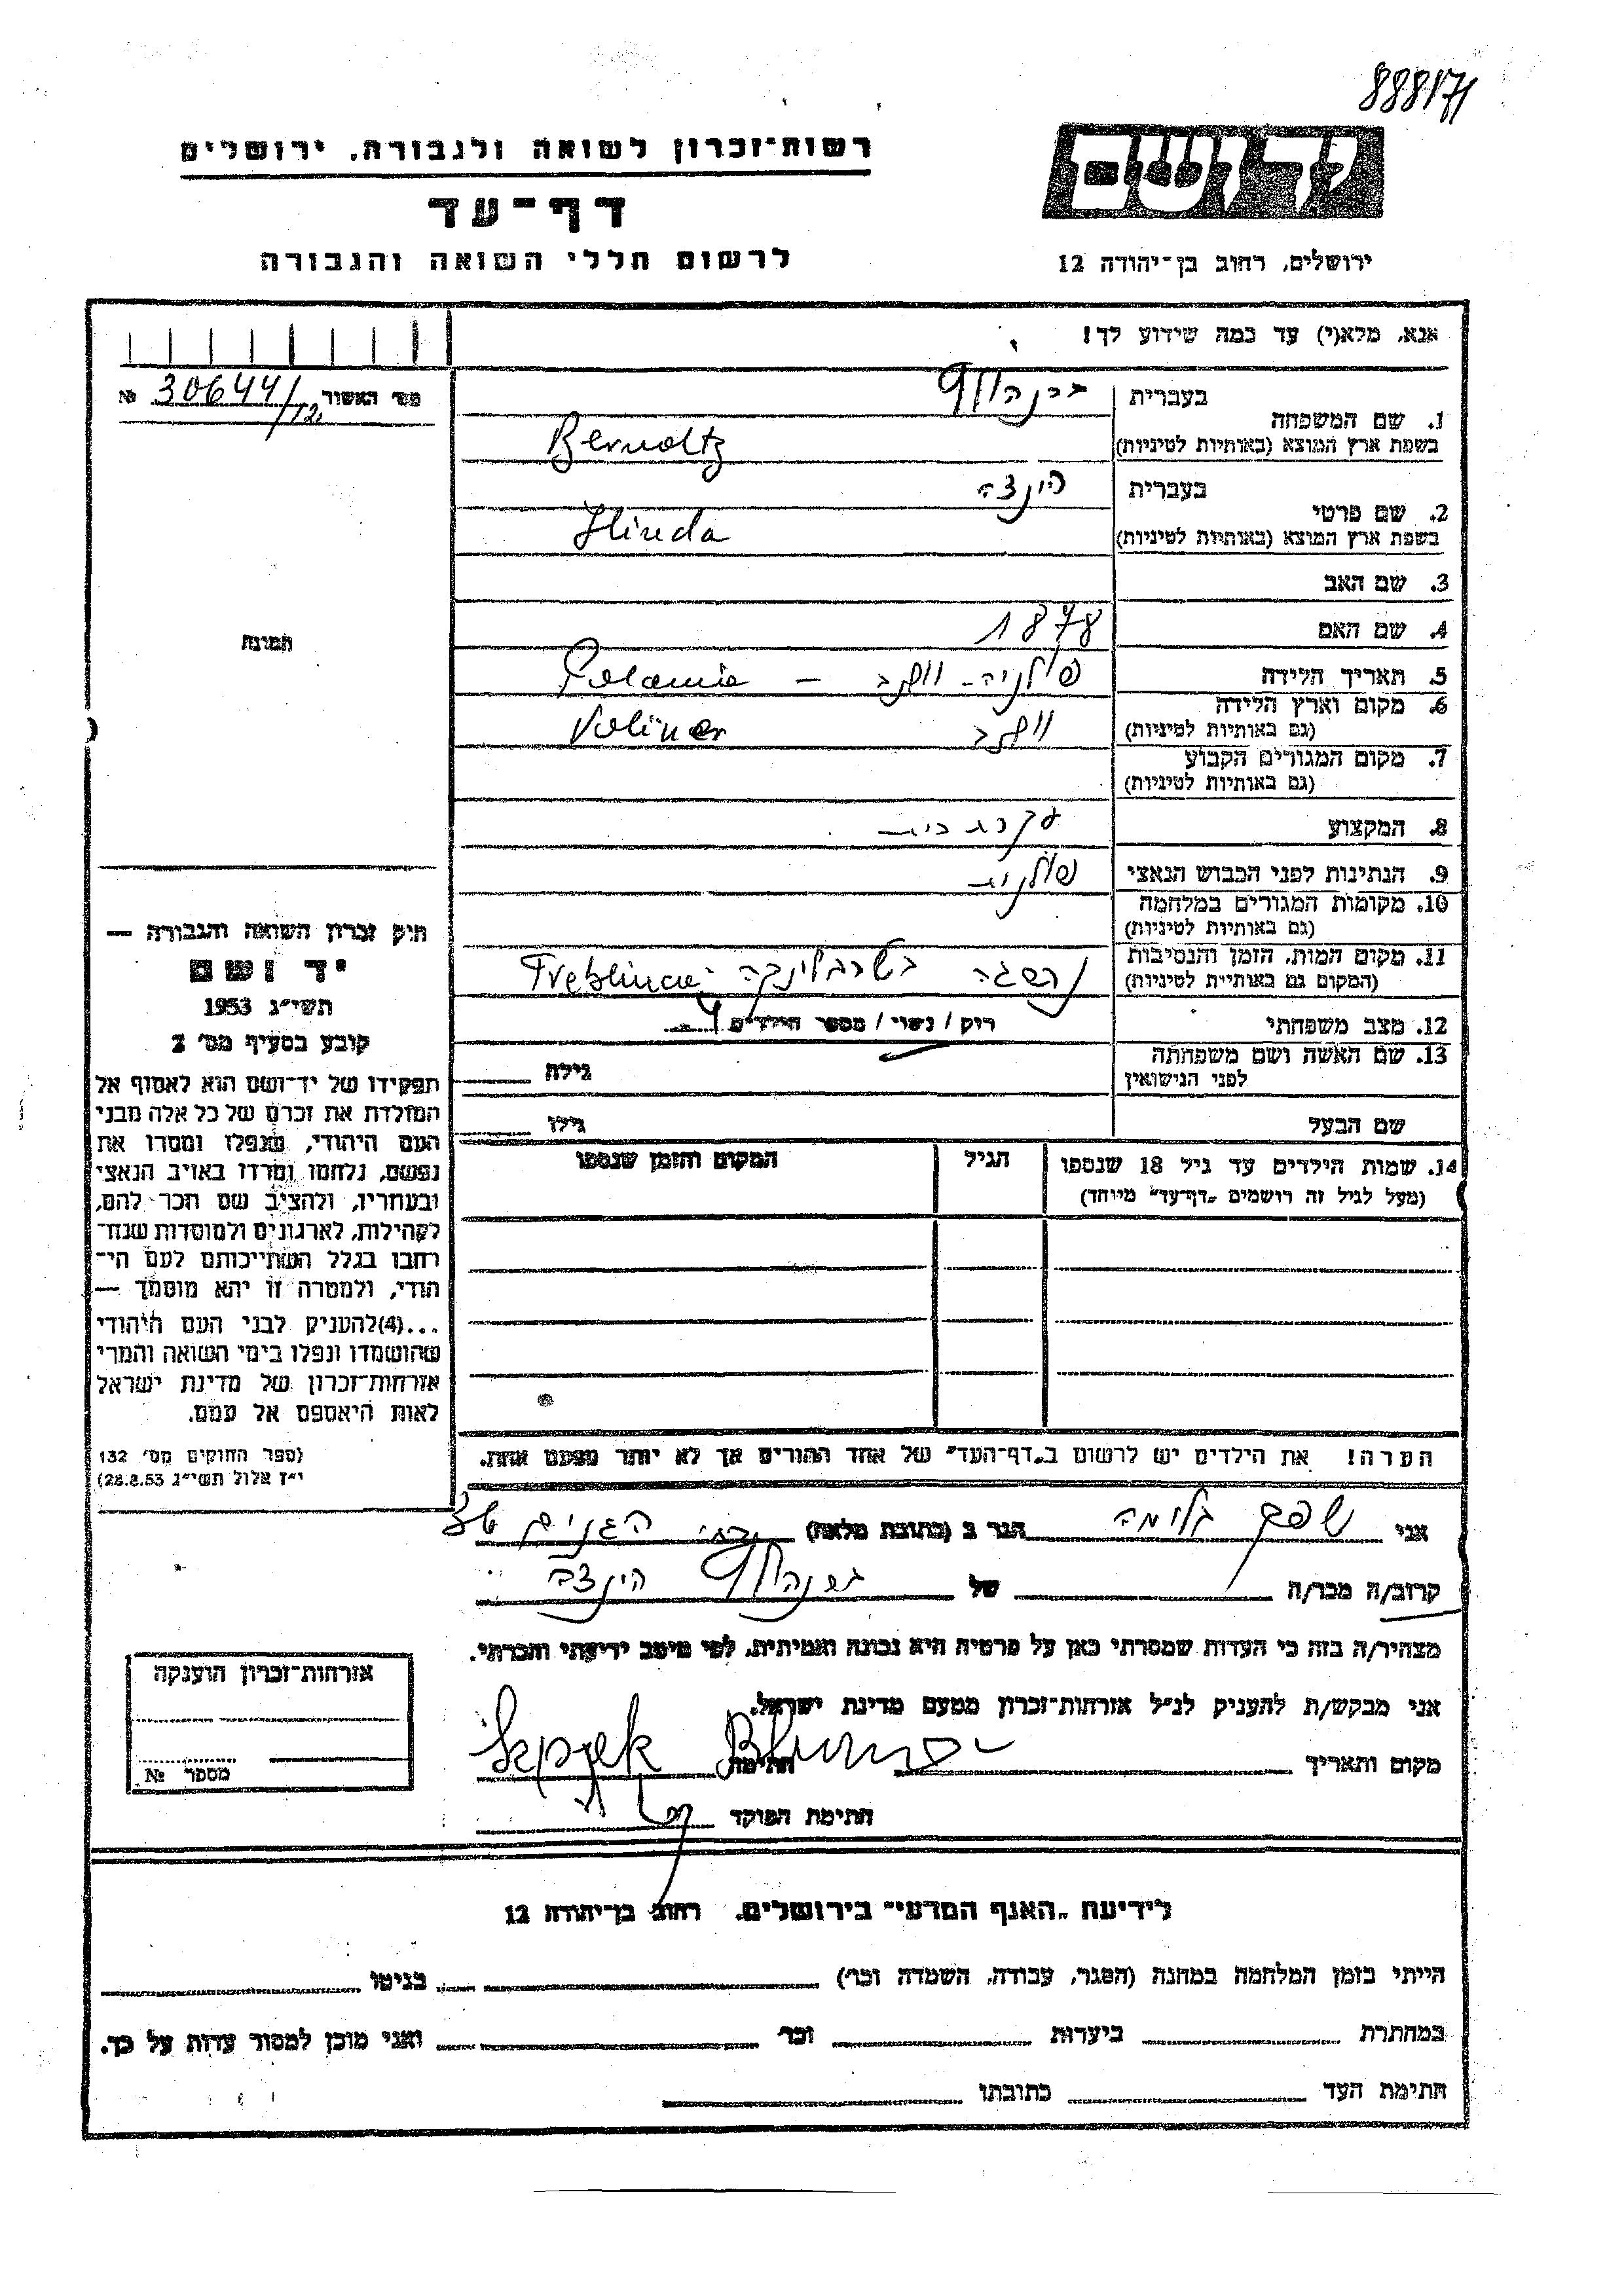 888171
רשות־זכרון לשואה ולגבורה, ירושלים
דף־עד
לרשום חללי השואה והגבורה
יד ושם
ירושלים, רחוב בן־יהודה 12
אנא, מלא(י) עד כמה שידוע לך!
מס' האשור № 30644/12
1. שם המשפחה
בעברית
בשפת ארץ המוצא (באותיות לטיניות) Bernoltz
2. שם פרטי
בעברית הינדה
בשפת ארץ המוצא (באותיות לטיניות) Hinda
3. שם האב
4. שם האם
1878
5. תאריך הלידה
פולניה - Polania
6. מקום וארץ הלידה
(גם באותיות לטיניות)
7. מקום המגורים הקבוע
(גם באותיות לטיניות)
8. המקצוע עקרת בית
9. הנתינות לפני הכבוש הנאצי פולנית
10. מקומות המגורים במלחמה
(גם באותיות לטיניות)
11. מקום המות, הזמן והנסיבות
(המקום גם באותיות לטיניות) נספתה בטרבלינקה Treblincae
12. מצב משפחתי רוק / נשוי / מספר הילדים 4
13. שם האשה ושם משפחתה
לפני הנישואין
גילה
שם הבעל גילו
14. שמות הילדים עד גיל 18 שנספו
(מעל לגיל זה רושמים "דף־עד" מיוחד)
הגיל
המקום והזמן שנספו
הערה! את הילדים יש לרשום ב"דף־העד" של אחד ההורים אך לא יותר מפעם אחת.
תמונה
חוק זכרון השואה והגבורה —
יד ושם
תשי"ג 1953
קובע בסעיף מס' 2
תפקידו של יד־ושם הוא לאסוף אל
המולדת את זכרם של כל אלה מבני
העם היהודי, שנפלו ומסרו את
נפשם, נלחמו ומרדו באויב הנאצי
ובעוזריו, ולהציב שם וזכר להם,
לקהילות, לארגונים ולמוסדות שנח־
רבו בגלל השתייכותם לעם הי־
הודי, ולמטרה זו יהא מוסמך —
...(4) להעניק לבני העם היהודי
שהושמדו ונפלו בימי השואה והמרי
אזרחות־זכרון של מדינת ישראל
לאות היאספם אל עמם.
(ספר החוקים מס' 132
י"ז אלול תשי"ג 28.8.53)
אני בלומה הגר ב (כתובת מלאה)
קרוב/ה מכר/ה של הינדה
מצהיר/ה בזה כי העדות שמסרתי כאן על פרטיה היא נכונה ואמיתית, לפי מיטב ידיעתי והכרתי.
אני מבקש/ת להעניק לנ"ל אזרחות־זכרון מטעם מדינת ישראל.
מקום ותאריך חתימה
חתימת הפוקד
אזרחות־זכרון הוענקה
מספר №
לידיעת "האגף המדעי" בירושלים, רחוב בן־יהודה 12
הייתי בזמן המלחמה במחנה (הסגר, עבודה, השמדה וכו') בגיטו
במחתרת ביערות וכו' ואני מוכן למסור עדות על כך.
חתימת העד כתובתו